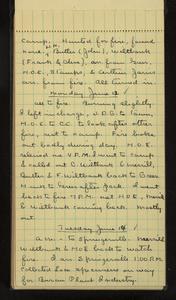 Camp. Hunted for fire, found
none. Butler (John), Wiltbank
(Frank & Chas), are from Greer,
H.O.E., Stamps, & Arthur Jarvis
are from fire. All turned in.
Monday June 13
All to fire. Burning slightly
I left in charge, J.D.G. to town,
H.O.E. to C.C. to look after other
fire, next to camp. Fire broke
out badly during day. H.O.E.
returned at 4 P.M. I went to camp
& called out D. Wiltbank & Merrill,
Butler & F. Wiltbank back to Greer
H went to Greer after pack. I went
back to fire 7 P.M. met H.O.E.,
& Wiltbank coming back. Mostly
out.
Tuesday June 14
A.M. - to Springerville. Merrill
Wiltbank & H.O.E. back to watch
fire. I ar. Springerville 11:00 A.M.
Collected loco specimens on way
for Bureau Plant Industry.